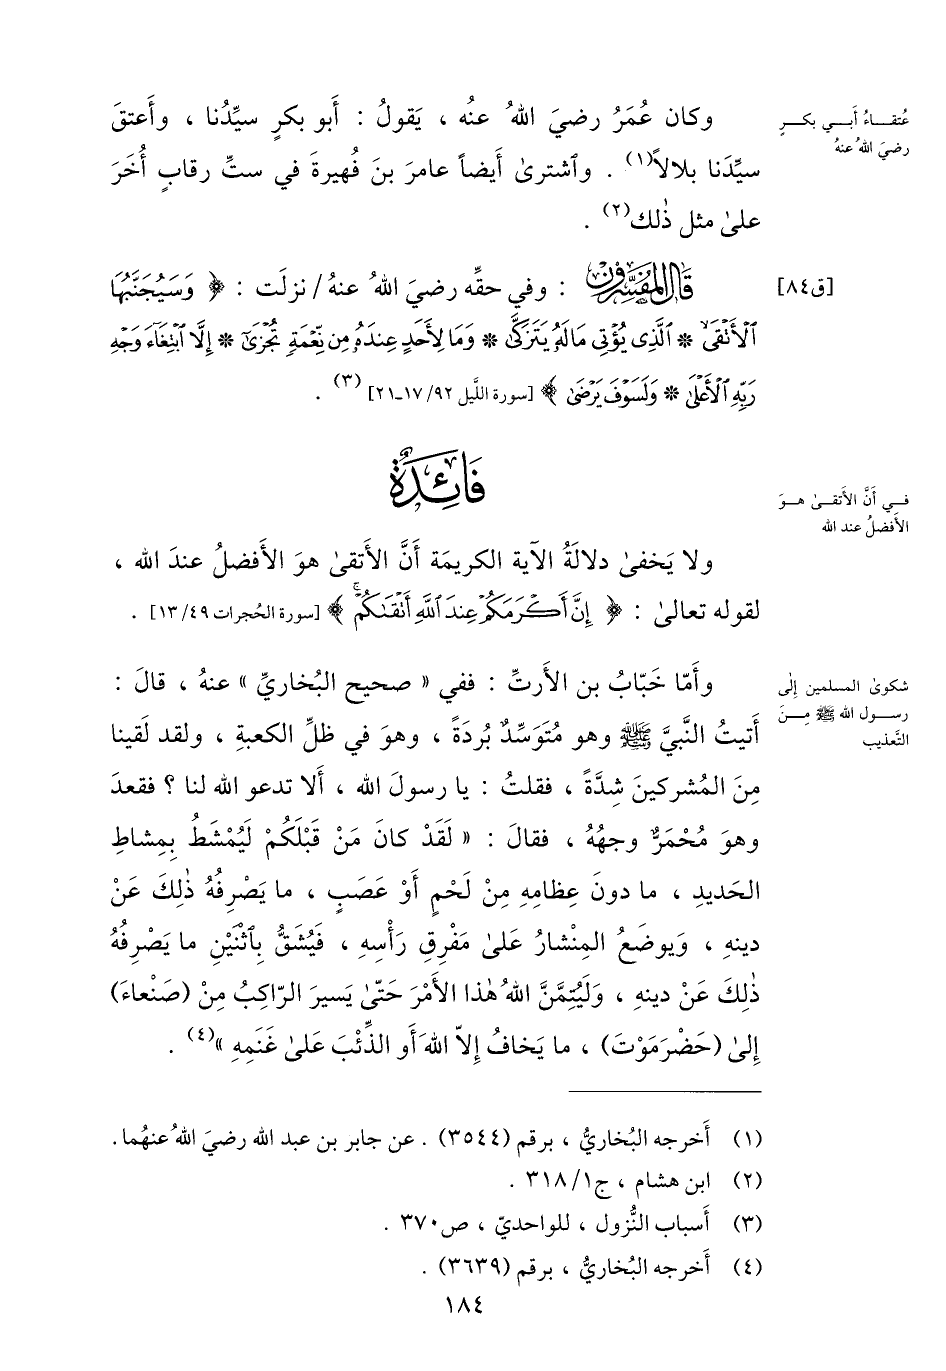 عُتقـاءُ أَبـي بكـرٍ
رضيَ اللهُ عنهُ
وكان عُمَرُ رضيَ اللهُ عنهُ ، يَقولُ : أَبو بكرٍ سيِّدُنا ، وأَعتقَ
سيِّدَنا بلالاً(١) . وٱشترىٰ أَيضاً عامرَ بنَ فُهيرةَ في ستِّ رقابٍ أُخَرَ
علىٰ مثل ذٰلك(٢) .
[ق٨٤]
قَالَ المُفَسِّرُونَ : وفي حقِّه رضيَ اللهُ عنهُ / نزلَت : ﴿ وَسَيُجَنَّبُهَا
ٱلْأَتْقَى * ٱلَّذِى يُؤْتِى مَالَهُۥ يَتَزَكَّىٰ * وَمَا لِأَحَدٍ عِندَهُۥ مِن نِّعْمَةٍ تُجْزَىٰٓ * إِلَّا ٱبْتِغَآءَ وَجْهِ
رَبِّهِ ٱلْأَعْلَىٰ * وَلَسَوْفَ يَرْضَىٰ ﴾ [سورة اللَّيل ٩٢/ ١٧-٢١](٣) .
فَائِدَةٌ
فـي أَنَّ الأَتقـىٰ هـوَ
الأَفضلُ عند الله
ولا يَخفىٰ دلالَةُ الآية الكريمَة أَنَّ الأَتقىٰ هوَ الأَفضلُ عندَ الله ،
لقوله تعالىٰ : ﴿ إِنَّ أَكْرَمَكُمْ عِندَ ٱللَّهِ أَتْقَىٰكُمْۚ ﴾ [سورة الحُجرات ٤٩/ ١٣] .
شكوىٰ المسلمين إِلى
رسـول الله ﷺ مِـنَ
التَّعذيب
وأَمّا خَبّابُ بن الأَرتِّ : ففي « صحيح البُخاريِّ » عنهُ ، قالَ :
أَتيتُ النَّبيَّ ﷺ وهو مُتَوَسِّدٌ بُردَةً ، وهوَ في ظلِّ الكعبةِ ، ولقد لَقينا
مِنَ المُشركينَ شِدَّةً ، فقلتُ : يا رسولَ الله ، أَلا تدعو الله لنا ؟ فقعدَ
وهوَ مُحْمَرٌّ وجهُهُ ، فقالَ : « لَقَدْ كانَ مَنْ قَبْلَكُمْ لَيُمْشَطُ بِمِشاطِ
الحَديدِ ، ما دونَ عِظامِهِ مِنْ لَحْمٍ أَوْ عَصَبٍ ، ما يَصْرِفُهُ ذٰلِكَ عَنْ
دينهِ ، وَيوضَعُ المِنْشارُ عَلىٰ مَفْرِقِ رَأْسِهِ ، فَيُشَقُّ بِٱثْنَيْنِ ما يَصْرِفُهُ
ذٰلِكَ عَنْ دينِهِ ، وَلَيُتِمَّنَّ اللهُ هٰذا الأَمْرَ حَتّىٰ يَسيرَ الرّاكِبُ مِنْ (صَنْعاءَ)
إِلىٰ (حَضْرَمَوْتَ) ، ما يَخافُ إِلاّ اللهَ أَو الذِّئْبَ عَلىٰ غَنَمِهِ »(٤) .
(١) أَخرجه البُخاريُّ ، برقم (٣٥٤٤) . عن جابر بن عبد الله رضيَ اللهُ عنهُما .
(٢) ابن هشام ، ج١/ ٣١٨ .
(٣) أَسباب النُّزول ، للواحديّ ، ص٣٧٠ .
(٤) أَخرجه البُخاريُّ ، برقم (٣٦٣٩) .
١٨٤